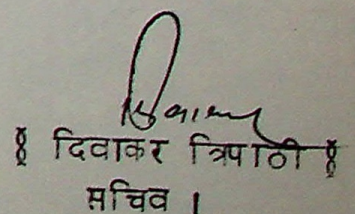 दिवाकर त्रिपाठी
सचिव ।